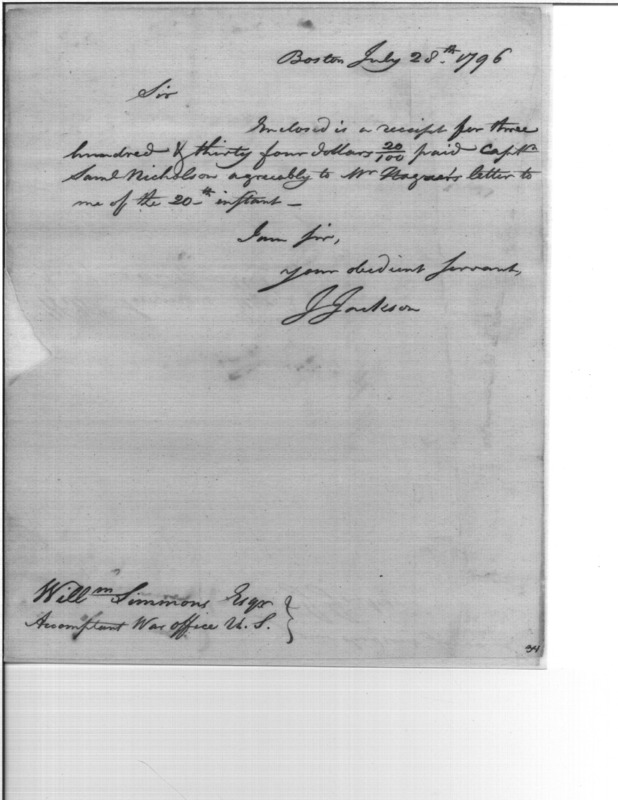 Boston July 28th 1796
Sir
Enclosed is a receipt for three
hundred & thirty four dollars 20/100 paid Captn
Saml Nicholson agreeably to Mr Hagner's letter to
me of the 20th instant—
I am Sir,
your obedient Servant,
J Jackson
Willm Simmons Esqr
Accomptant War office U. S.